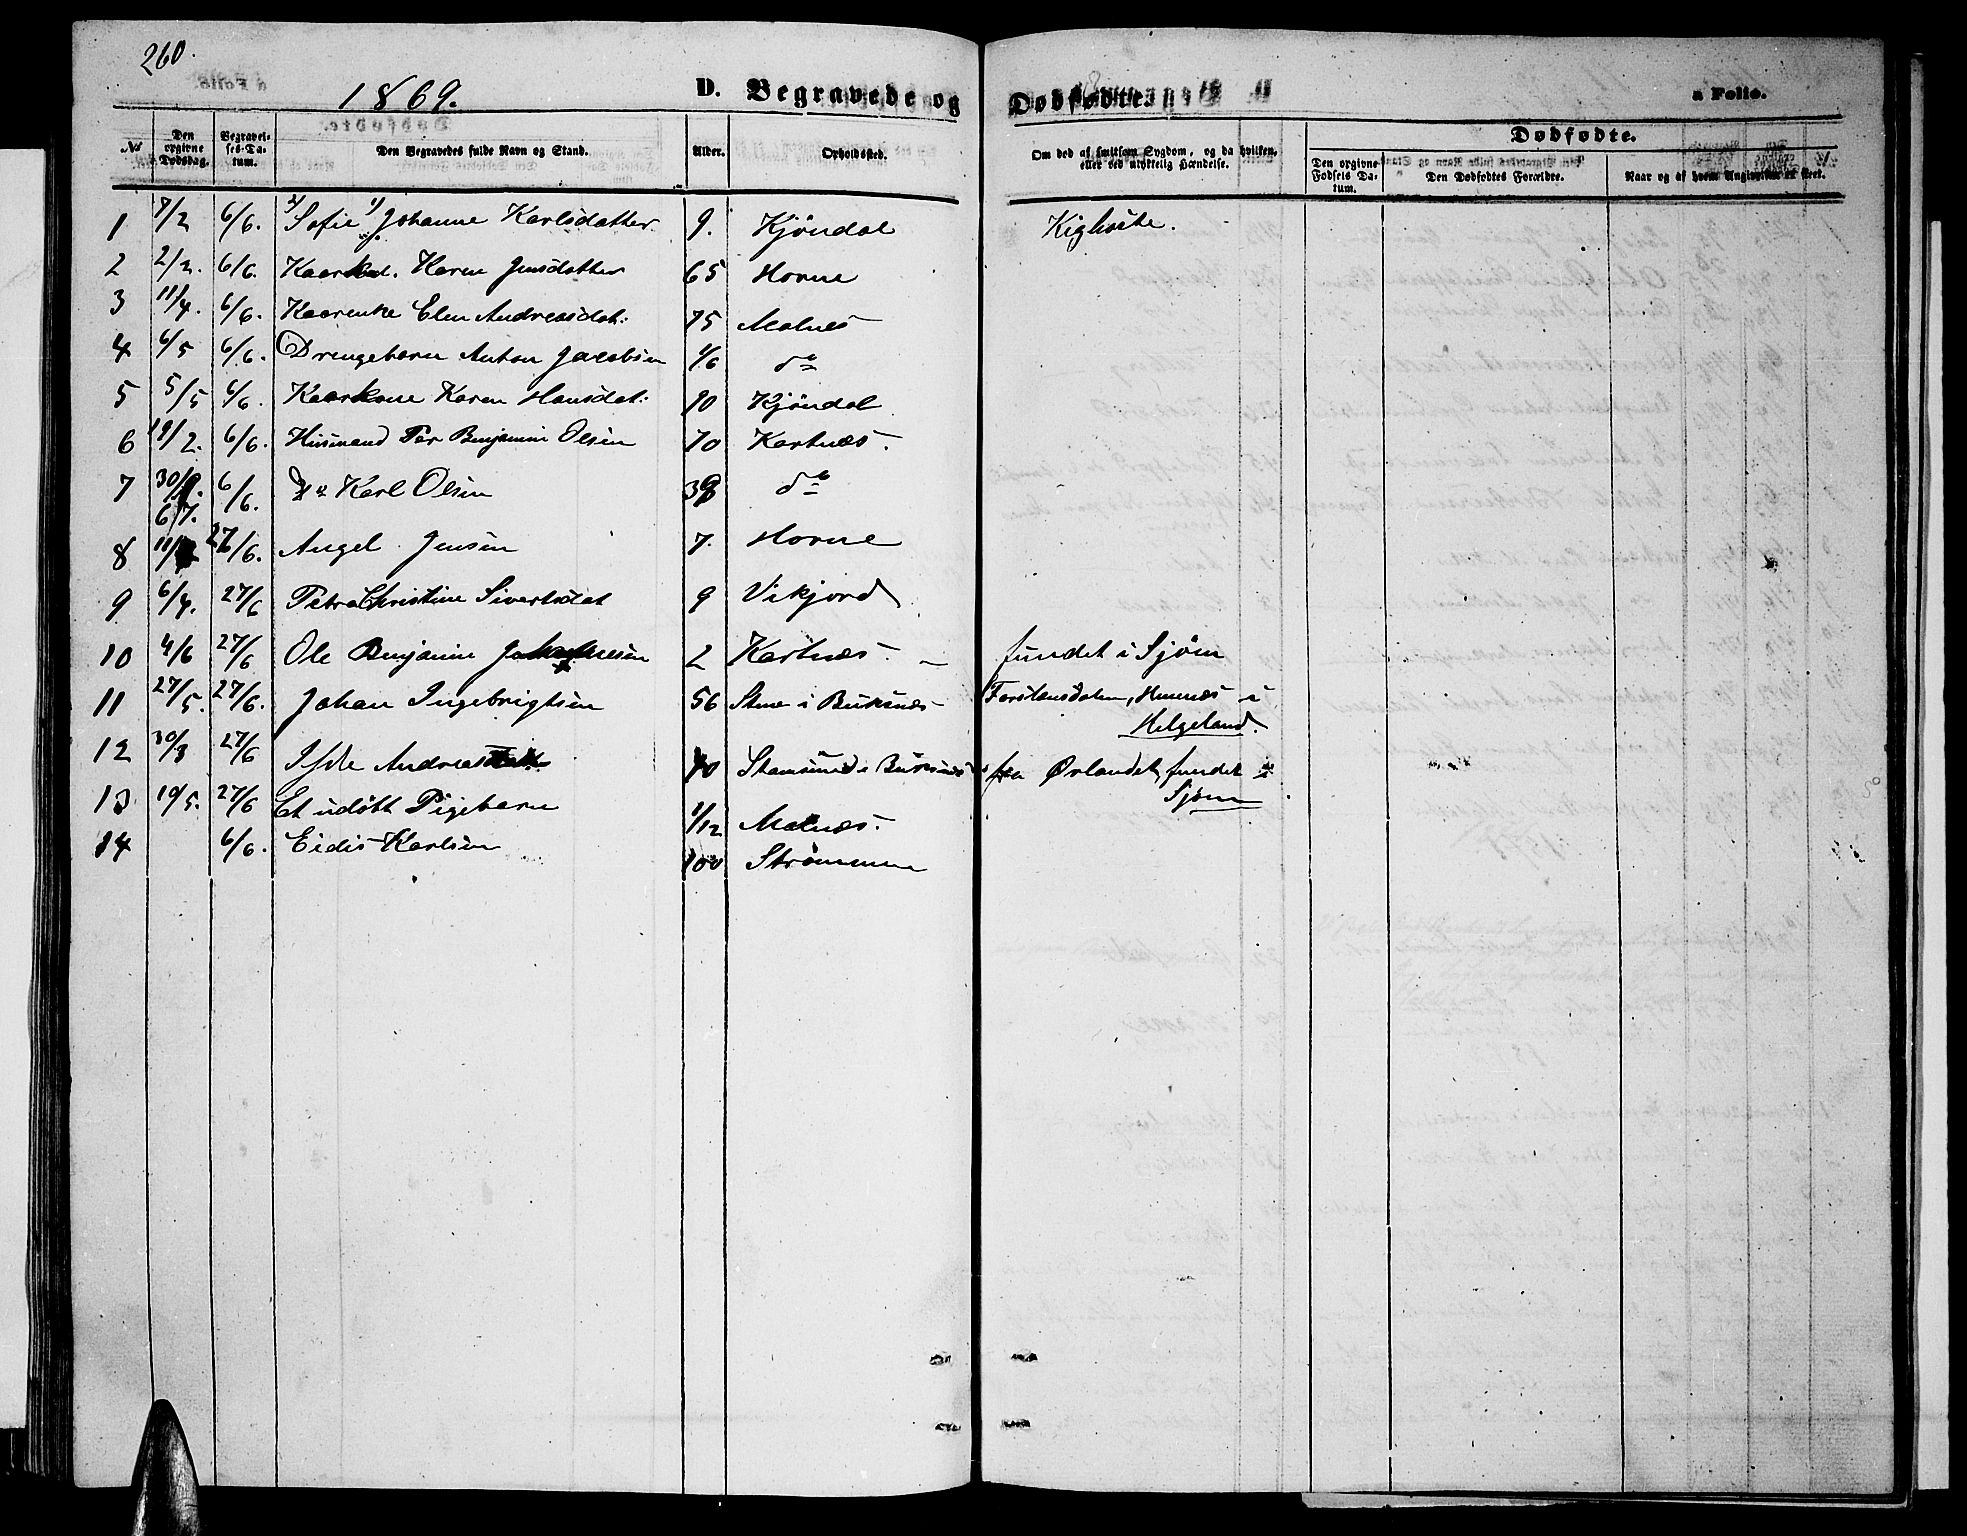 260.
1869.
D. Begravede og Dødfødte.
a Folio.
No
Den opgivne Dødsdag.
Begravelses-Datum.
Den Begravedes fulde Navn og Stand.
Alder.
Opholdssted.
Om død af smitsom Sygdom, og da hvilken, eller ved ulykkelig Hændelse.
Dødfødte.
Den opgivne Fødsels Datum.
Den Dødfødtes Forældre.
Naar og af hvem Angivelsen er skeet.
1 7/2 6/6. 2/ Sofie 1/ Johanne Karlsdatter 9. Kjöndal Kighoste.
2 2/2. 6/6. Karen Jensdatter 65 Horne
3 11/4. 6/6. Kaarenke Elen Andreasdat: 75 Molnes
4 6/5 6/6. Drengebarn Anton Jacobsen 1/6 do
5 5/5 6/6. Kaarkone Karen Hansdat: 90 Kjöndal
6 19/2. 6/6. Husmand Per Benjamin Olsen 70 Kartnæs.
7 6/6. Do Karl Olsen 39 do
8 27/6. Angel Jensen 7. Horne
9 6/4. 27/6 Petra Christine Sivertsdat 9 Vikjord
10 4/6 27/6 Ole Benjamin 2 Kartnæs. – fundet i Sjøen
11 27/5. 27/6. Johan Ingebrigtsen 56 Stene i Buksnæs Hemnæs i
Helgeland.
12 30/3 27/6 Stamsund i Buksnæs fra Ørlandet, fundet i
Sjøen
13 19/5. 27/6 Et udøbt Pigebarn 1/12 Molnæs.
14 6/6. Eidis Karlsen 100 Strømmen